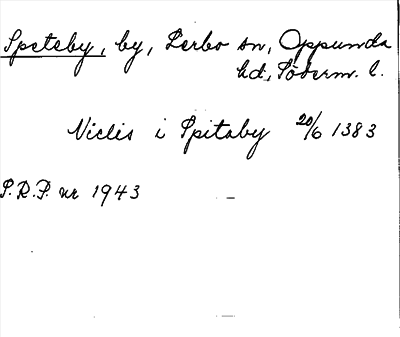 Speteby, by, Lerbo sn, Oppunda
hd, Söderm. l.
Niclis i Spitaby 20/6 1383
S.R.P. nr 1943